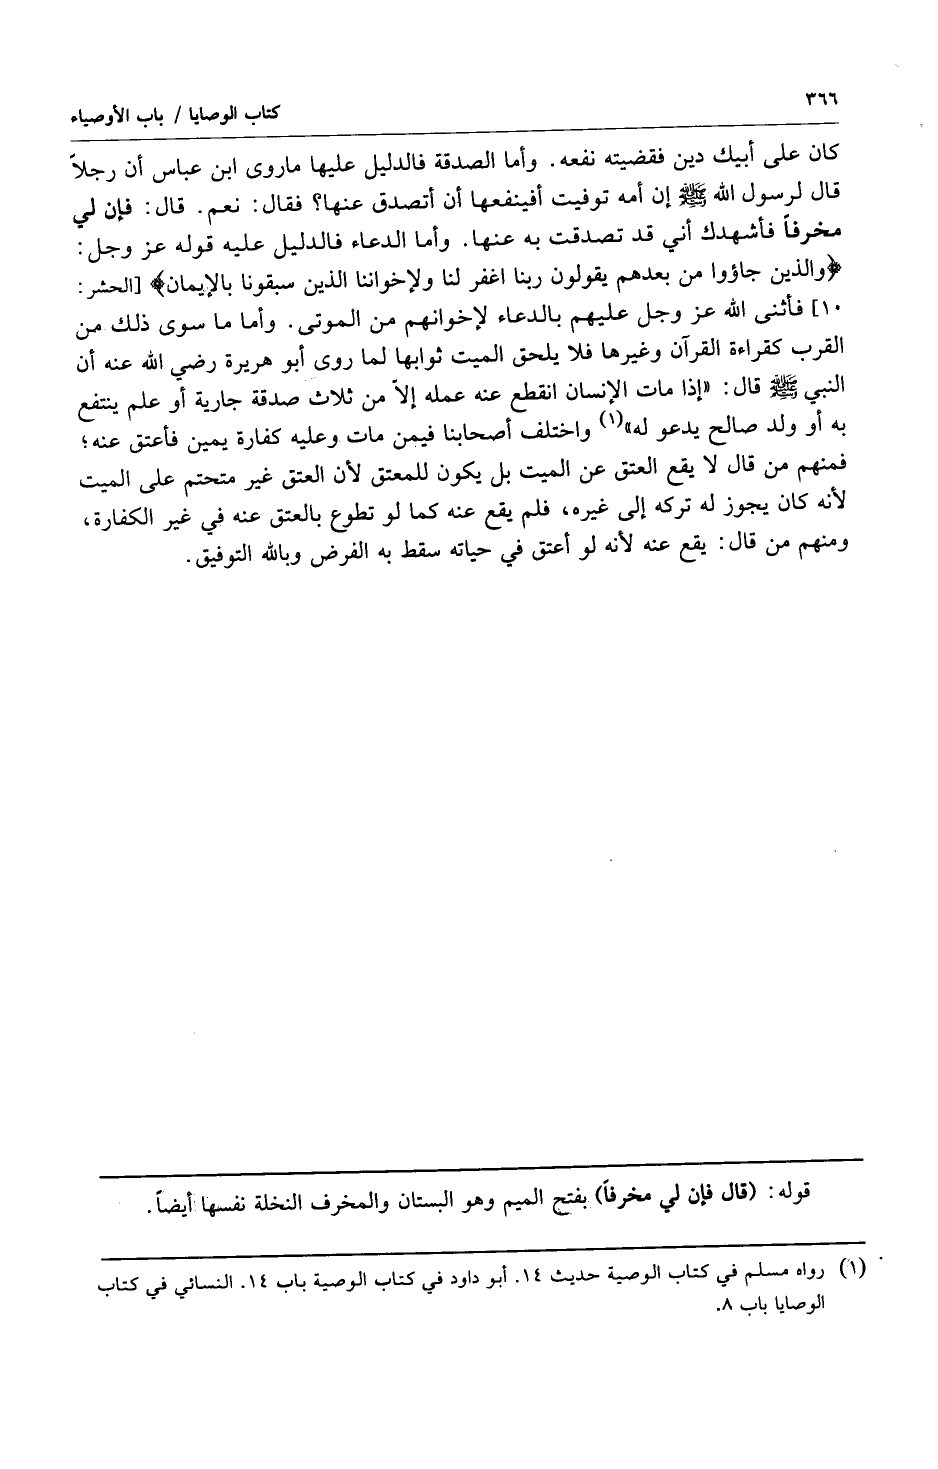 ٣٦٦
كتاب الوصايا / باب الأوصياء
كان على أبيك دين فقضيته نفعه. وأما الصدقة فالدليل عليها ماروى ابن عباس أن رجلاً
قال لرسول الله ﷺ إن أمه توفيت أفينفعها أن أتصدق عنها؟ فقال: نعم. قال: فإن لي
مخرفاً فأشهدك أني قد تصدقت به عنها. وأما الدعاء فالدليل عليه قوله عز وجل:
﴿والذين جاؤوا من بعدهم يقولون ربنا اغفر لنا ولإخواننا الذين سبقونا بالإيمان﴾ [الحشر:
١٠] فأثنى الله عز وجل عليهم بالدعاء لإخوانهم من الموتى. وأما ما سوى ذلك من
القرب كقراءة القرآن وغيرها فلا يلحق الميت ثوابها لما روى أبو هريرة رضي الله عنه أن
النبي ﷺ قال: «إذا مات الإنسان انقطع عنه عمله إلاّ من ثلاث صدقة جارية أو علم ينتفع
به أو ولد صالح يدعو له»(١) واختلف أصحابنا فيمن مات وعليه كفارة يمين فأعتق عنه؛
فمنهم من قال لا يقع العتق عن الميت بل يكون للمعتق لأن العتق غير متحتم على الميت
لأنه كان يجوز له تركه إلى غيره، فلم يقع عنه كما لو تطوع بالعتق عنه في غير الكفارة،
ومنهم من قال: يقع عنه لأنه لو أعتق في حياته سقط به الفرض وبالله التوفيق.
قوله: (قال فإن لي مخرفاً) بفتح الميم وهو البستان والمخرف النخلة نفسها أيضاً.
(١) رواه مسلم في كتاب الوصية حديث ١٤. أبو داود في كتاب الوصية باب ١٤. النسائي في كتاب
الوصايا باب ٨.